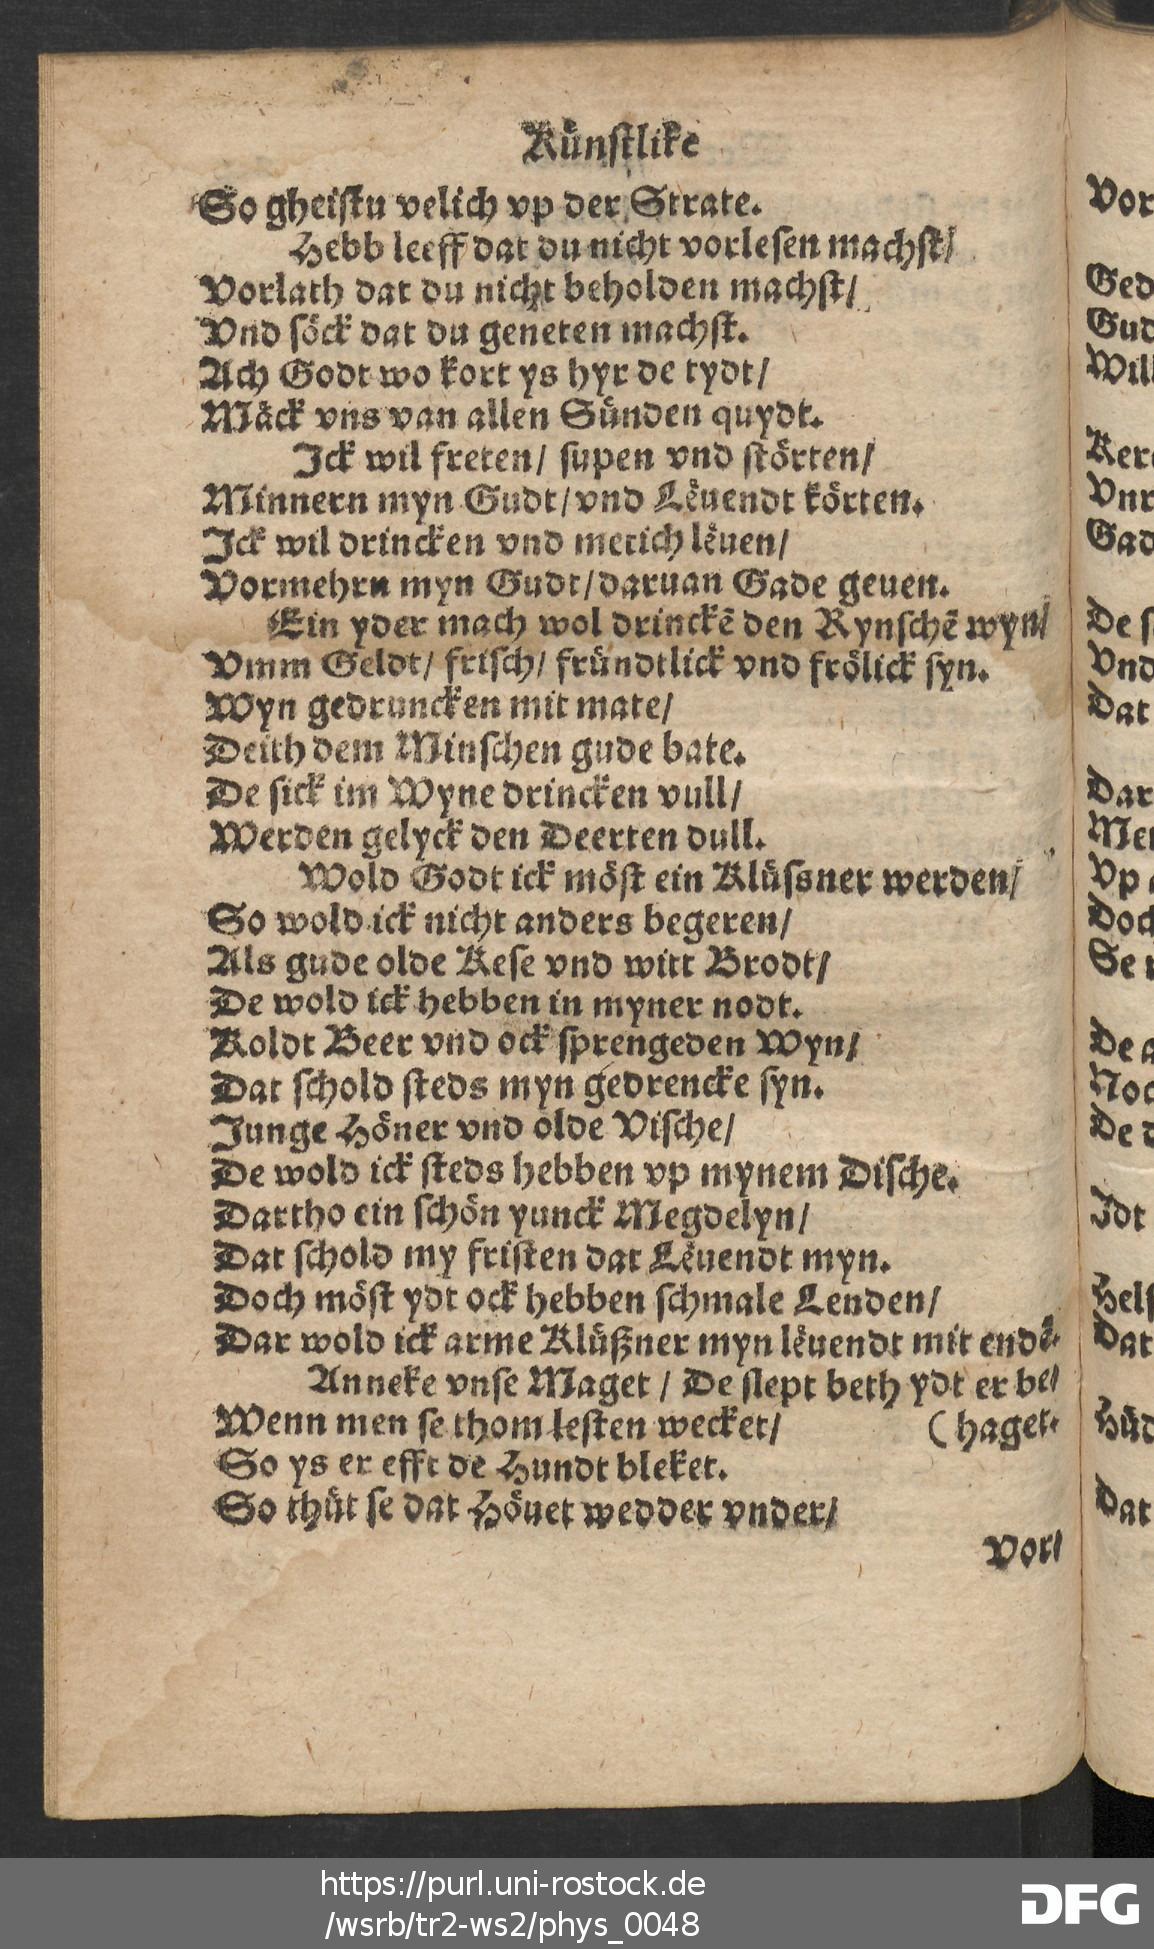 Kuͤnſtlike
So gheiſtu velich vp der Strate.
Hebb leeff dat du nicht vorleſen machſt/
Vorlath dat du nicht beholden machſt/
Vnd ſoͤck dat du geneten machſt.
Ach Godt wo kort ys hyr de tydt/
Maͤck vns van allen Suͤnden quydt.
Ick wil freten/ ſupen vnd ſtoͤrten/
Minnern myn Gudt/vnd Leͤuendt koͤrten.
Ick wil drincken vnd metich leͤuen/
Vormehrn myn Gudt/daruan Gade geuen.
Ein yder mach wol drinckē den Rynſchē wyn/
Vmm Geldt/ friſch/ fruͤndtlick vnd froͤlick ſyn.
Wyn gedruncken mit mate/
Deith dem Minſchen gude bate.
De ſick im Wyne drincken vull/
Werden gelyck den Deerten dull.
Wold Godt ick moͤſt ein Kluͤſsner werden/
So wold ick nicht anders begeren/
Als gude olde Keſe vnd witt Brodt/
De wold ick hebben in myner nodt.
Koldt Beer vnd ock ſprengeden Wyn/
Dat ſchold ſteds myn gedrencke ſyn.
Junge Hoͤner vnd olde Viſche/
De wold ick ſteds hebben vp mynem Diſche.
Dartho ein ſchoͤn yunck Megdelyn/
Dat ſchold my friſten dat Leͤuendt myn.
Doch moͤſt ydt ock hebben ſchmale Lenden/
Dar wold ick arme Kluͤßner myn leͤuendt mit endē.
Anneke vnſe Maget / De ſlept beth ydt er be/
Wenn men ſe thom leſten wecket/ (haget.
So ys er efft de Hundt bleket.
So thuͤt ſe dat Hoͤuet wedder vnder/
Vor/
Vor
Ged
Gud
Will
Ker
Vnr
Gad
De ſ
Vnd
Dat
Dar
Me
Vp
Doc
Se
De
Noc
De
Idt
Helſ
Dat
Huͤd
Dat
https://purl.uni-rostock.de
/wsrb/tr2-ws2/phys_0048
DFG